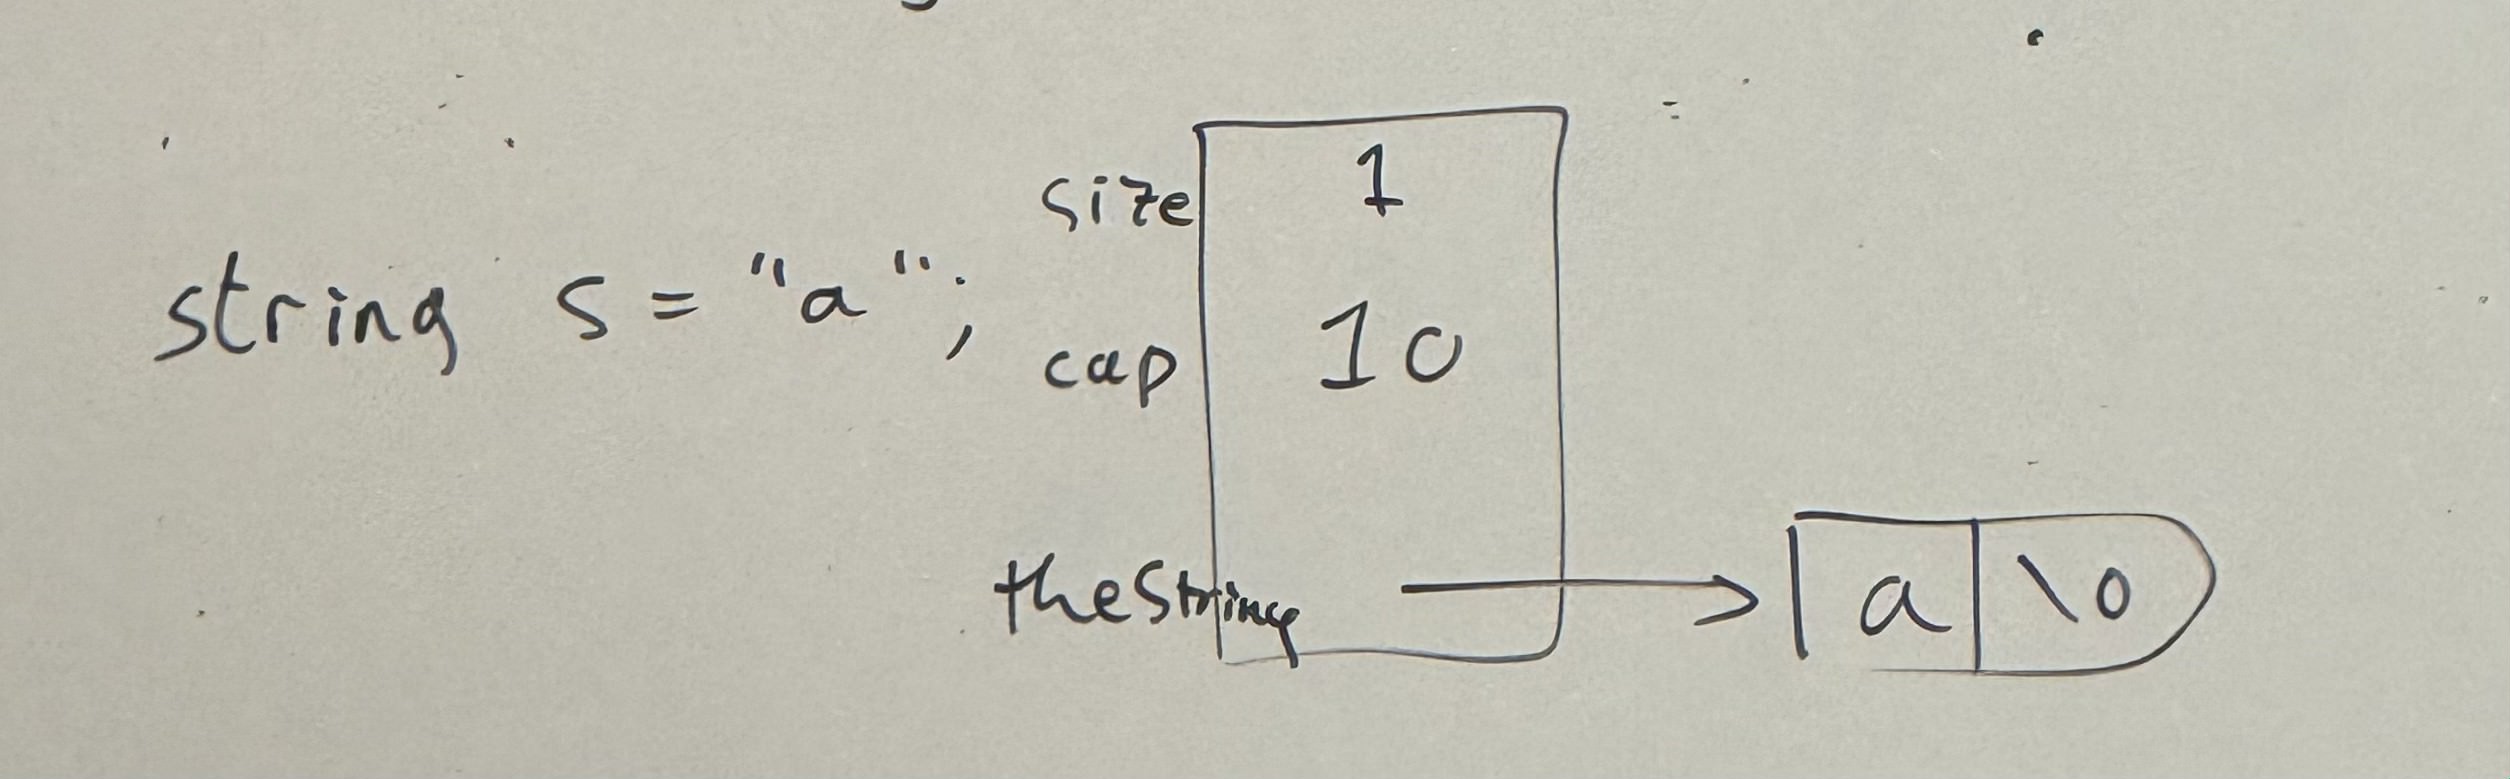 string s = "a";
size 1
cap 10
theString
a \0